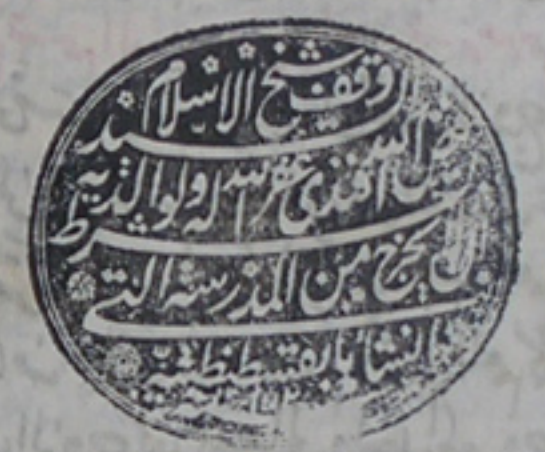 وقف شيخ الاسلام
السيد
فيض الله افندى غفر الله له ولوالديه
بشرط
ان لا يخرج من المدرسة التى
انشأها بقسطنطينية